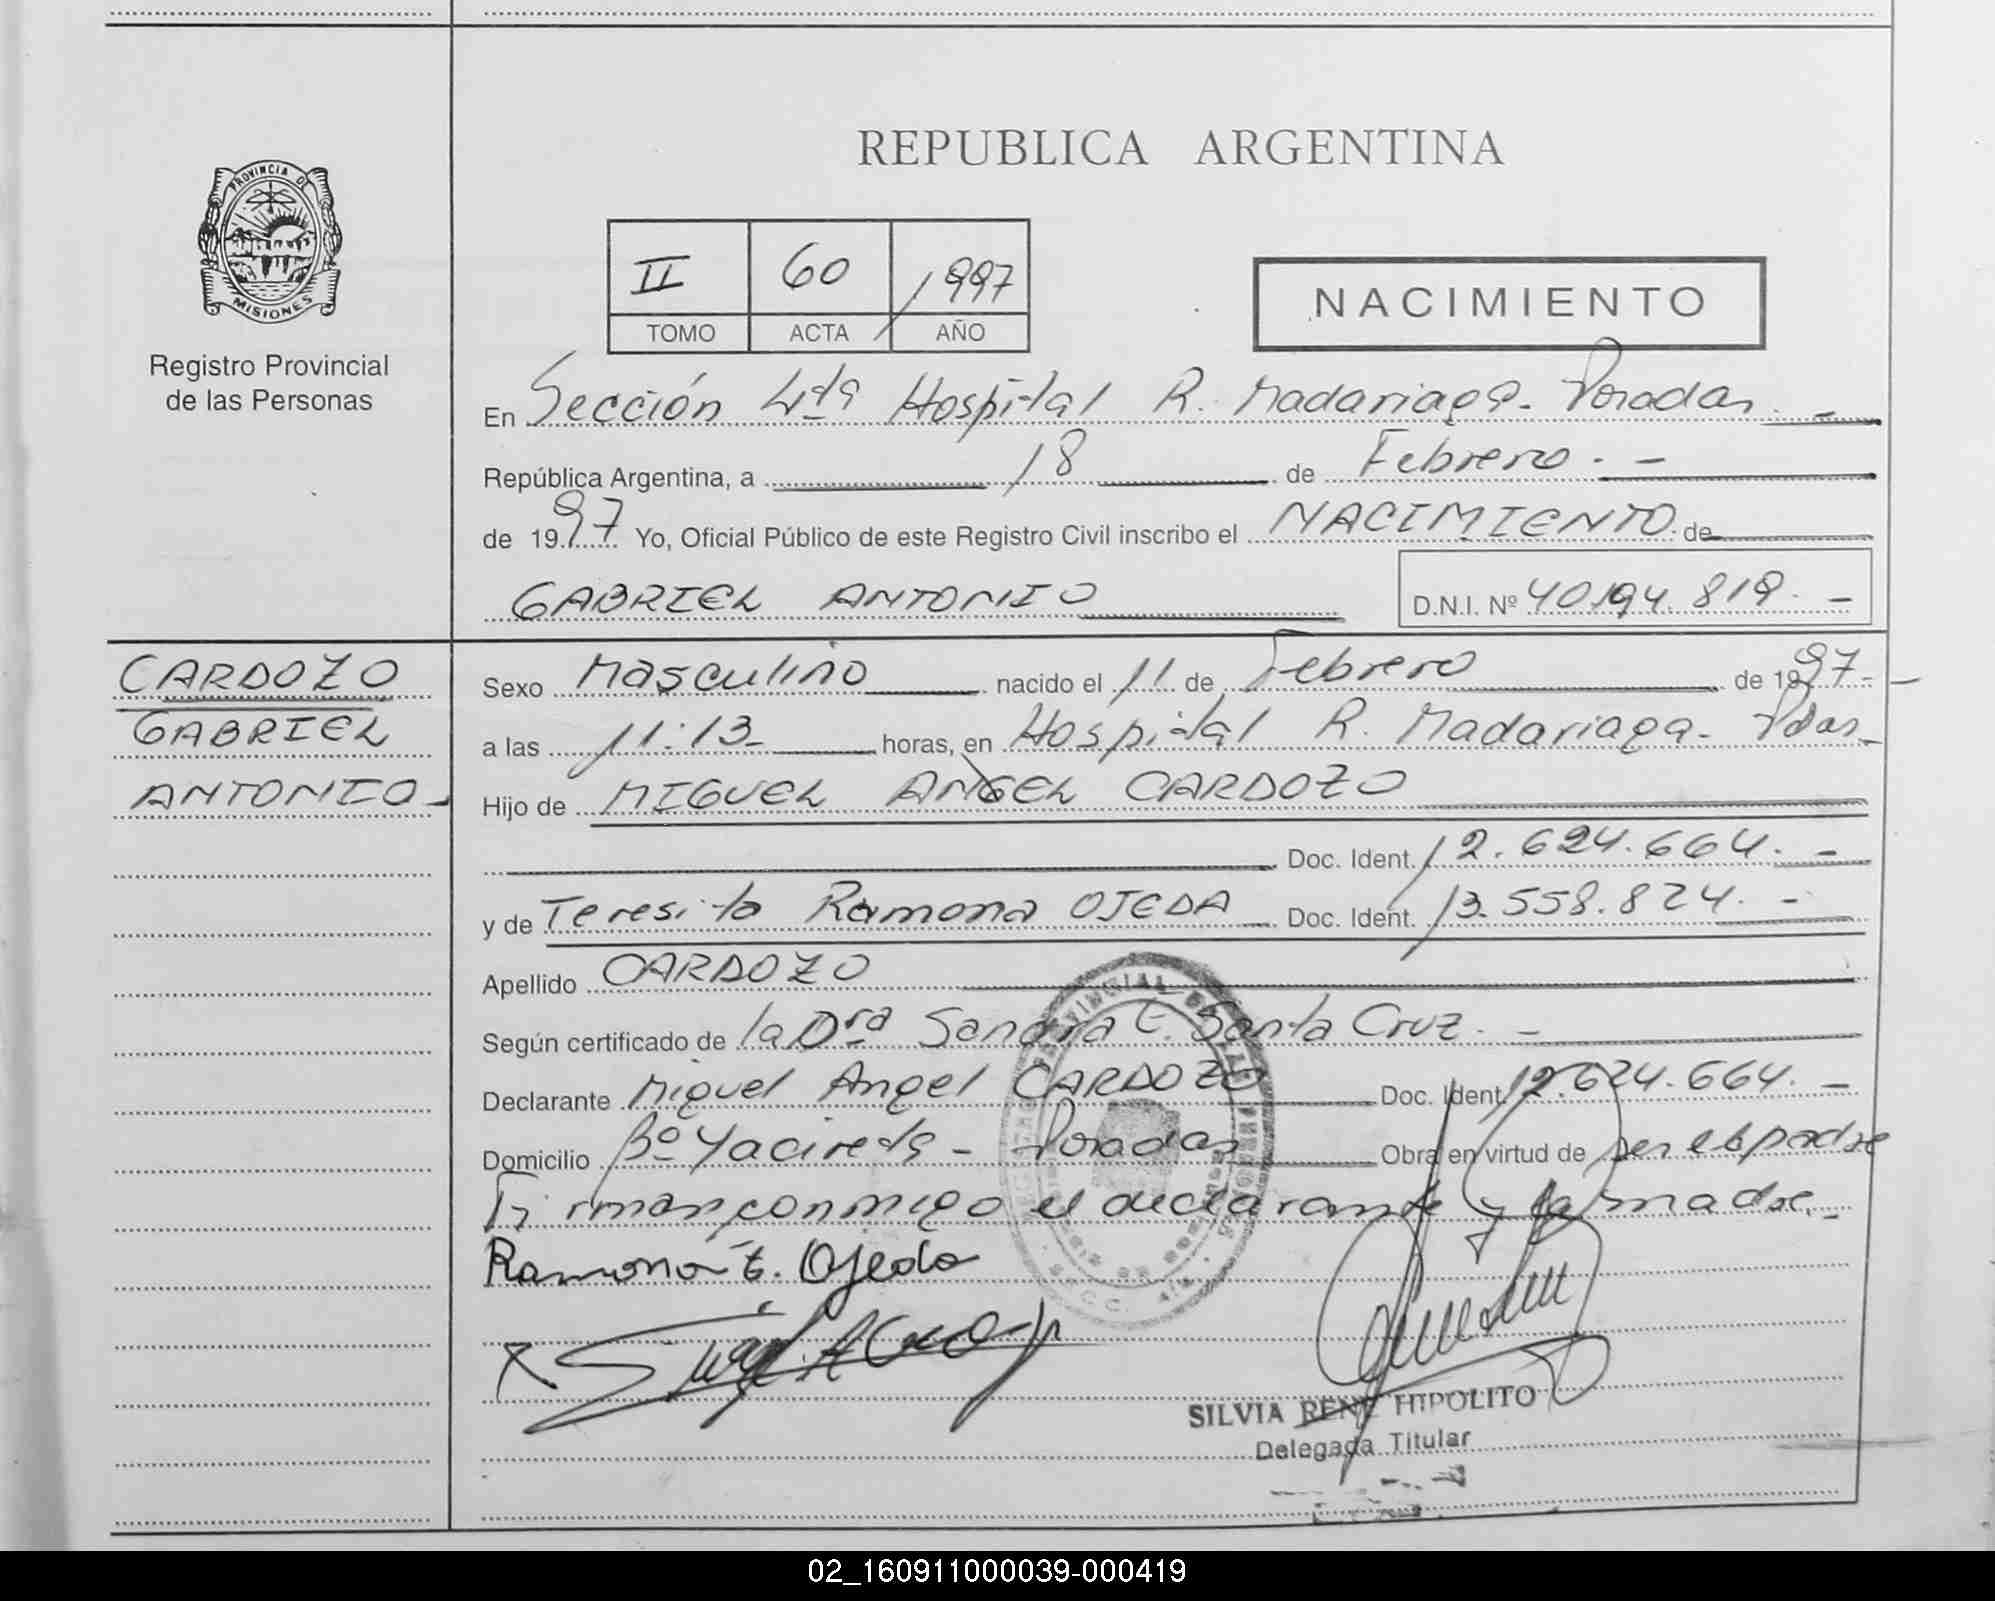 PROVINCIA DE
MISIONES
Registro Provincial
de las Personas
REPUBLICA ARGENTINA
II 60 1997
TOMO ACTA AÑO
NACIMIENTO
En Sección 4ta Hospital R. Madariaga. Posadas. -
República Argentina, a 18 de Febrero. -
de 1997 Yo, Oficial Público de este Registro Civil inscribo el NACIMIENTO de
GABRIEL ANTONIO D.N.I. Nº 40.194.819. -
CARDOZO
GABRIEL
ANTONIO -
Sexo Masculino nacido el 11 de Febrero de 1997. -
a las 11:13 horas, en Hospital R. Madariaga - Pdas.
Hijo de MIGUEL ANGEL CARDOZO
Doc. Ident. 12.624.664. -
y de Teresita Ramona OJEDA Doc. Ident. 13.558.824. -
Apellido CARDOZO
Según certificado de la Dra Sandra E. Santa Cruz. -
Declarante Miguel Angel CARDOZO Doc. Ident. 12.624.664. -
Domicilio Bº Yacireta - Posadas Obra en virtud de ser el padre
Firman conmigo el declarante y la madre. -
Ramona t. Ojeda
SILVIA RENE HIPOLITO
Delegada Titular
02_160911000039-000419